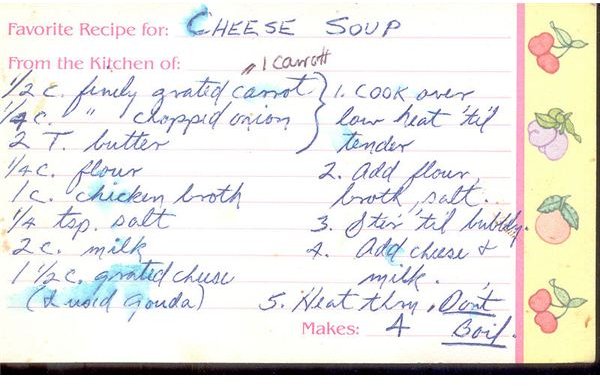 Favorite Recipe for: CHEESE SOUP
From the Kitchen of: 1 carrott
1/2 c. finely grated carrot
1/4 c. " chopped onion
2 T. butter
1/4 c. flour
1 c. chicken broth
1/4 tsp. salt
2 c. milk
1 1/2 c. grated cheese
(I used gouda)
1. COOK over
low heat 'til
tender
2. Add flour,
broth, salt.
3. Stir 'til bubbly.
4. Add cheese &
milk.
5. Heat thru, Don't
Boil.
Makes: 4